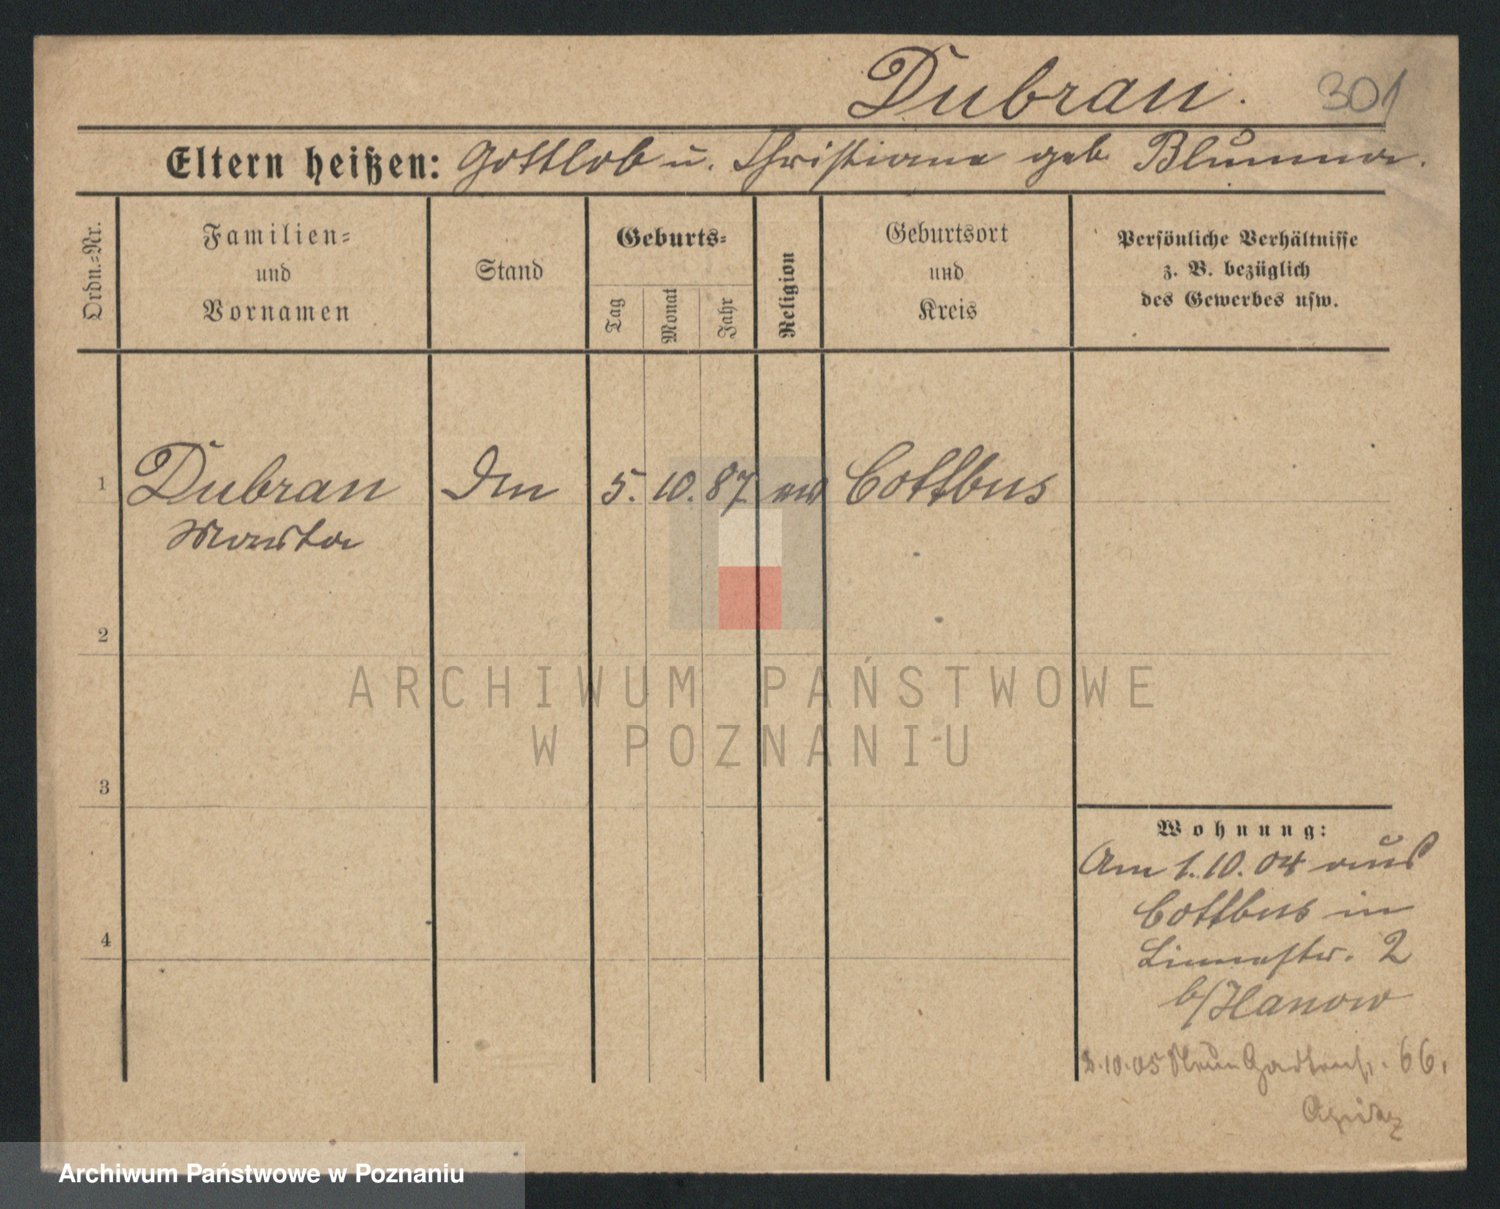 Dubrau. 301
Eltern heißen: Gottlob u. Christiane geb Blumma.
Ordn.-Nr.
Familien-
und
Vornamen
Stand
Geburts-
Tag
Monat
Jahr
Religion
Geburtsort
und
Kreis
Persönliche Verhältnisse
z. B. bezüglich
des Gewerbes usw.
1 Dubrau 5. 10. 87 Cottbus
Martha
2
3
4
Wohnung:
Am 1.10.04 aus
Cottbus in
2
b/Hanow
3.10.05 66.
ARCHIWUM PAŃSTWOWE
W POZNANIU
Archiwum Państwowe w Poznaniu